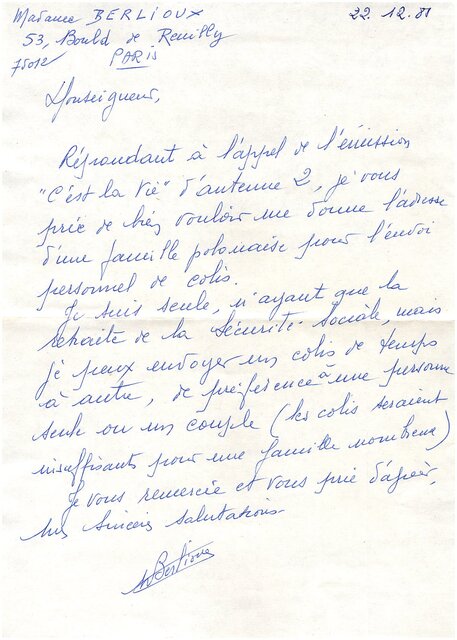 Madame BERLIOUX
22.12.81
53, Bould de Reuilly
75012 PARIS
Monseigneur,
Répondant à l'appel de l'émission
"C'est la Vie" d'antenne 2, je vous
prie de bien vouloir me donne l'adresse
d'une famille polonaise pour l'envoi
personnel de colis.
Je suis seule, n'ayant que la
retraite de la Sécurité Sociale, mais
je peux envoyer un colis de temps
à autre, de préférence à une personne
seule ou un couple (les colis seraient
insuffisants pour une famille nombreuse)
Je vous remercie et vous prie d'agréer,
mes sincères salutations.
Berlioux